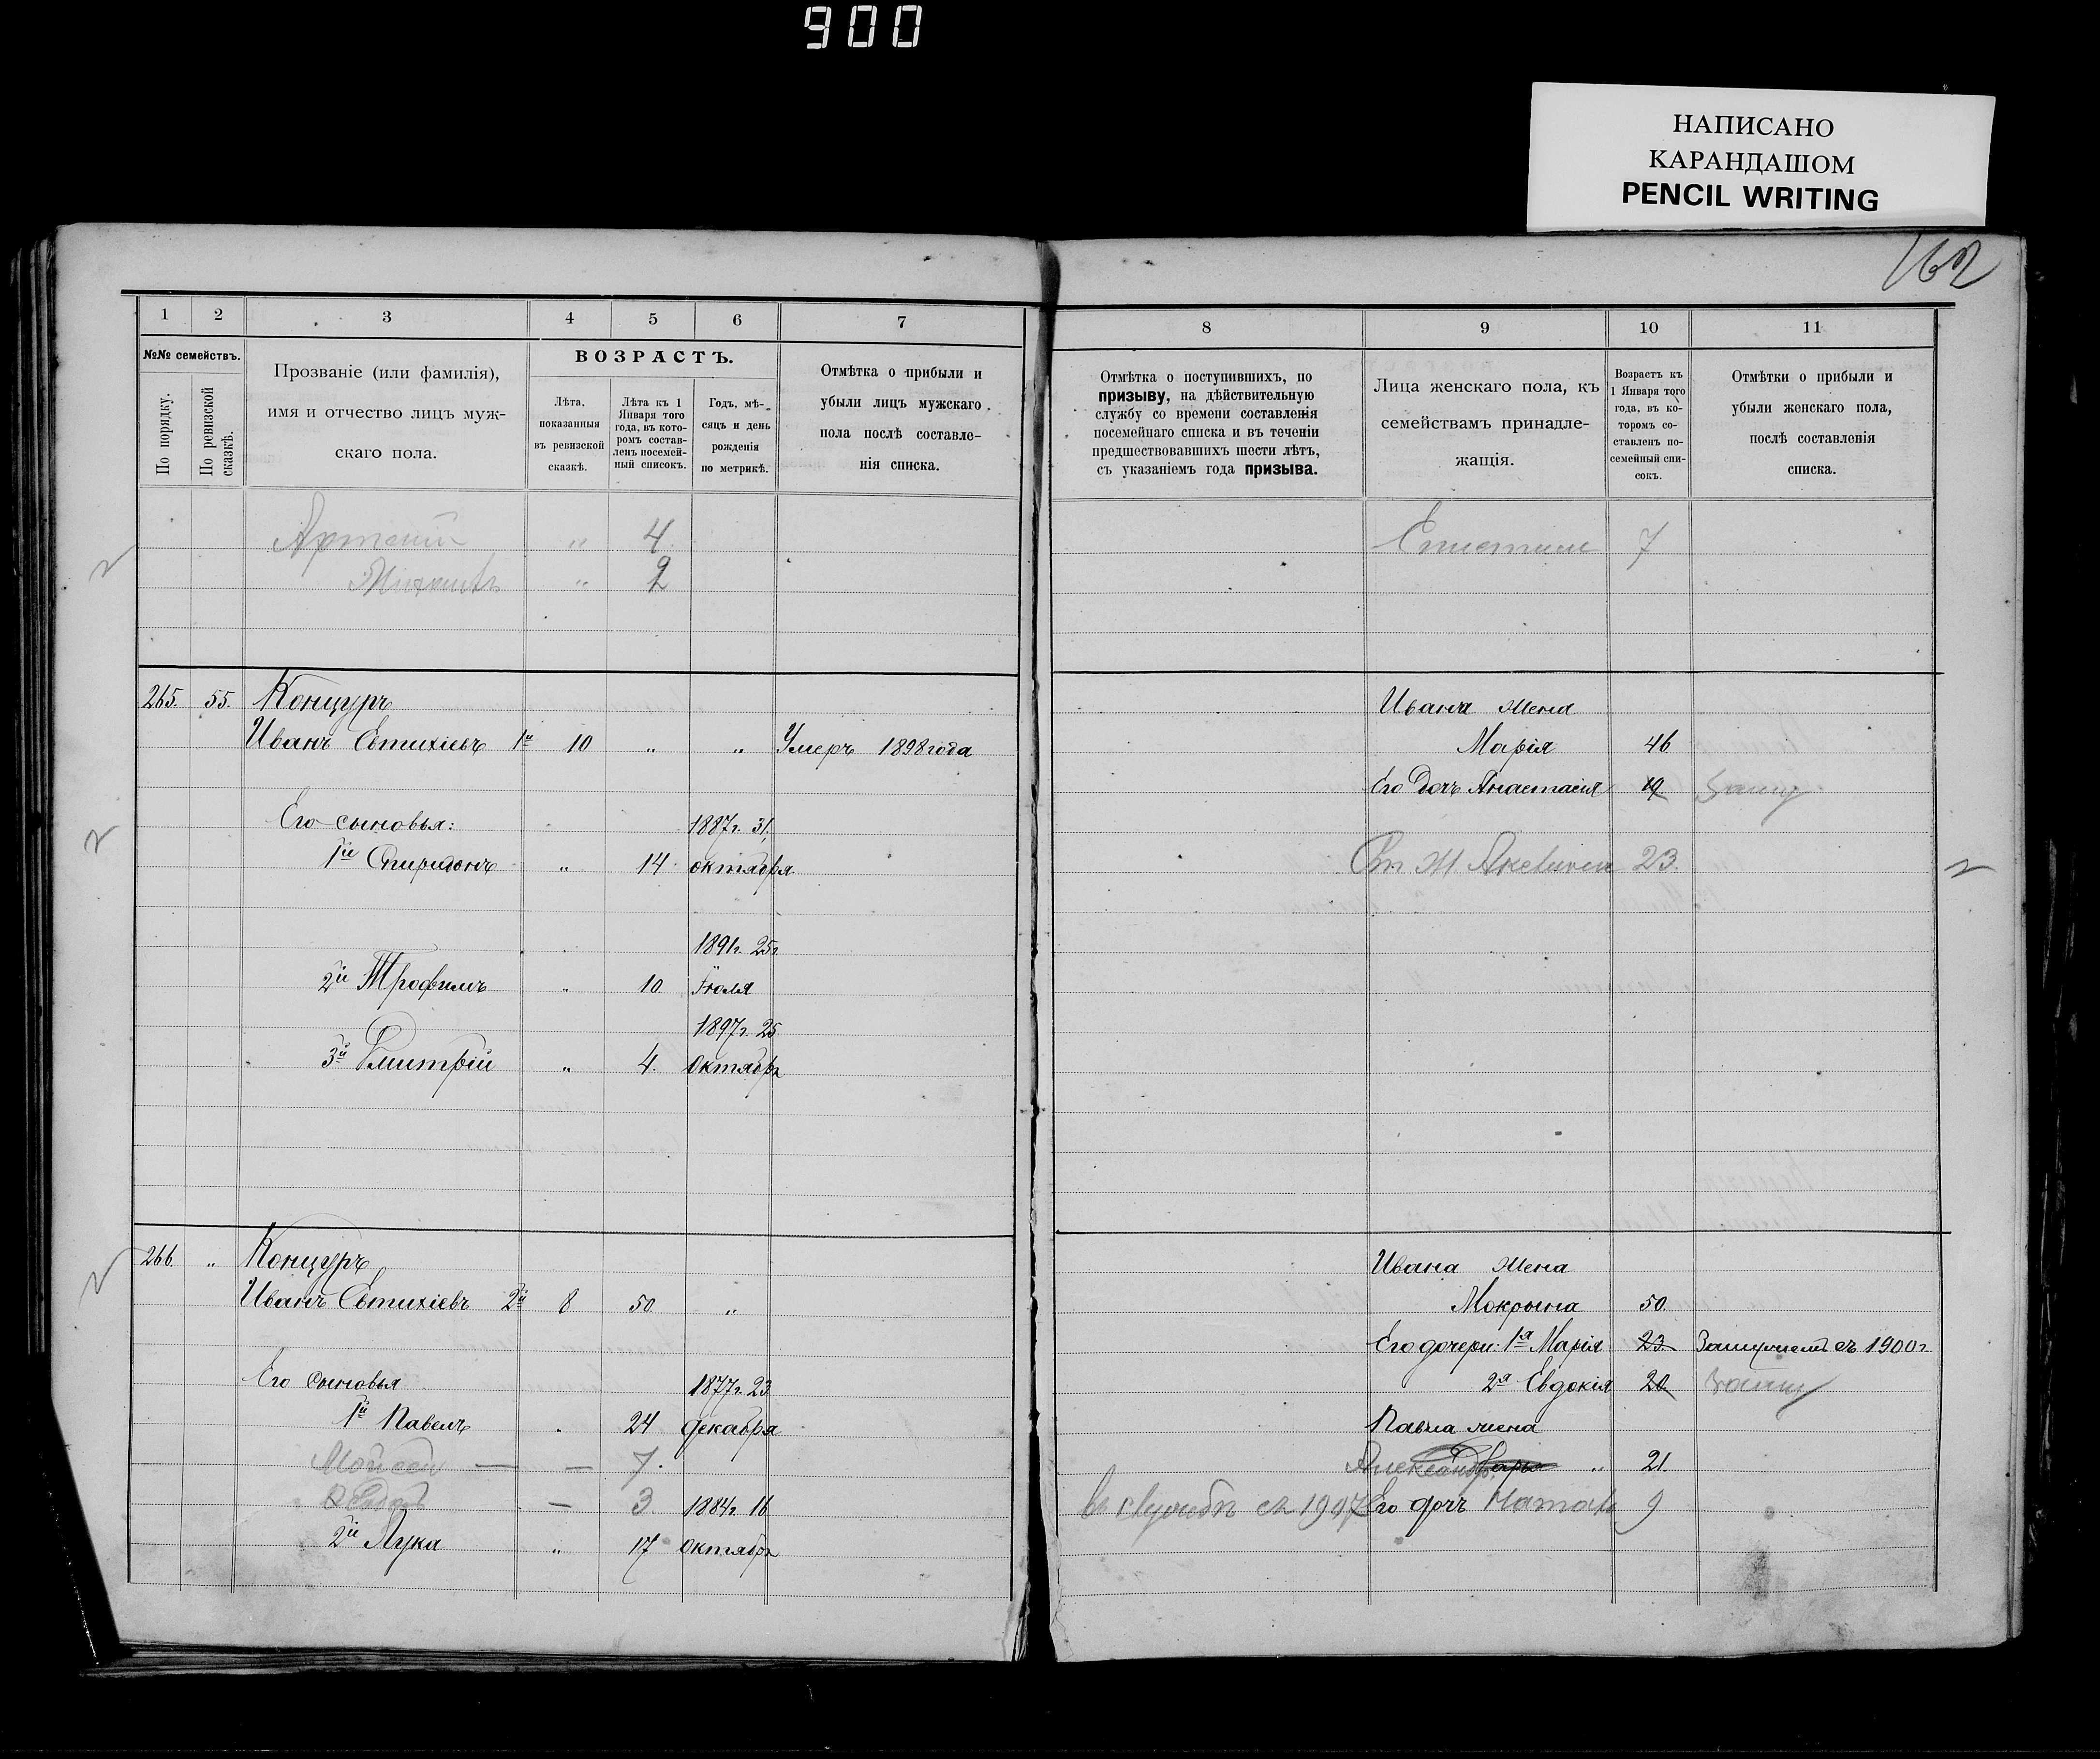 900
НАПИСАНО
КАРАНДАШОМ
PENCIL WRITING
162
1 2 3 4 5 6 7
8 9 10 11
№№ семействъ.
По порядку.
По ревизской сказкѣ.
Прозваніе (или фамилія),
имя и отчество лицъ муж-
скаго пола.
ВОЗРАСТЪ.
Лѣта,
показанныя
въ ревизской
сказкѣ.
Лѣта къ 1
Января того
года, въ кото-
ромъ состав-
ленъ посемей-
ный списокъ.
Годъ, мѣ-
сяцъ и день
рожденія
по метрикѣ.
Отмѣтка о прибыли и
убыли лицъ мужскаго
пола послѣ составле-
нія списка.
Отмѣтка о поступившихъ, по
призыву, на дѣйствительную
службу со времени составленія
посемейнаго списка и въ теченіи
предшествовавшихъ шести лѣтъ,
съ указаніемъ года призыва.
Лица женскаго пола, къ
семействамъ принадле-
жащія.
Возрастъ къ
1 Января того
года, въ ко-
торомъ со-
ставленъ по-
семейный спи-
сокъ.
Отмѣтки о прибыли и
убыли женскаго пола,
послѣ составленія
списка.
" 4
7
" 2
265. 55. Концуръ
Иванъ Евтихіевъ 1й 10 " " Умеръ 1898 года
Его сыновья: 1887г. 31
1й Спиридонъ " 14 октября
1891г. 25г
2й Трофимъ " 10 Іюля
1897г. 25
3й Дмитрій " 4. Октябр
Ивана жена
Марія 46
Его дочь Анастасія 19 Замуж
23.
266. " Концуръ
Иванъ Евтихіевъ 2й 8 50 "
Его сыновья 1877г. 23
1й Павелъ " 24 декабря
Мойсей — — 7.
— 3 1884г. 16
2й Лука " 17 Октябр
Ивана жена
Мокрына 50.
Его дочери: 1я Марія 23. Замужемъ съ 1900г.
2я Евдокія 20 Замуж
Павла жена
Александр " 21.
въ службѣ съ 1907 Его дочь Натал 9